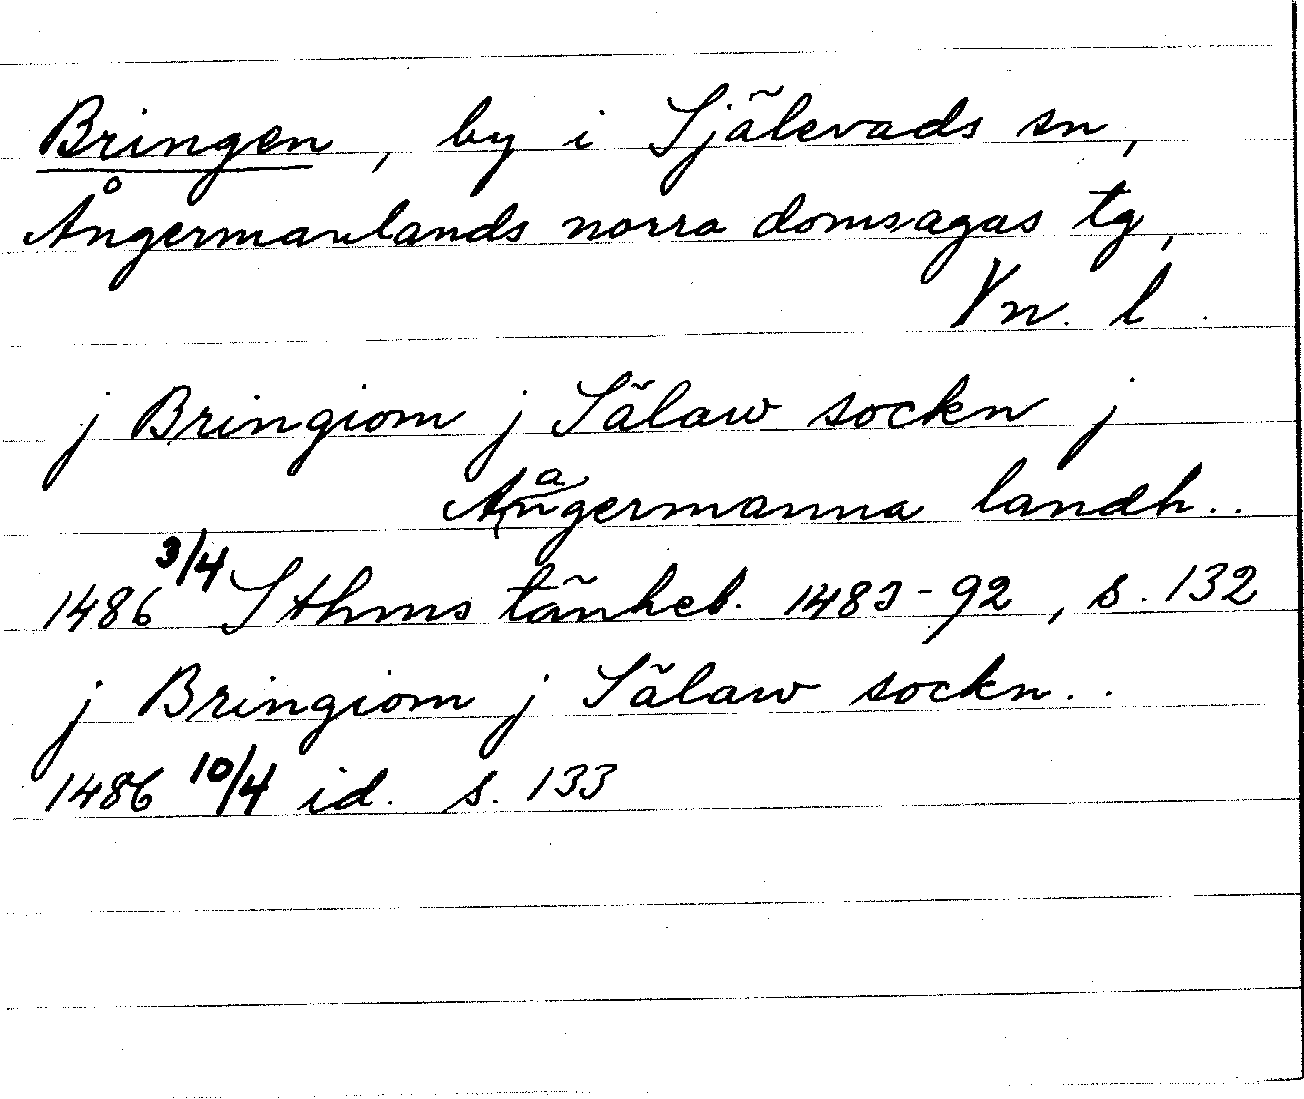 Bringen, by i Själevads sn,
Ångermanlands norra domsagas tg,
Vn. l.
j Bringiom j Sälaw sockn j
Aangermanna landh..
1486 3/4 Sthms tänkeb. 1483-92, s. 132
j Bringiom j Sälaw sockn..
1486 10/4 id. s. 133